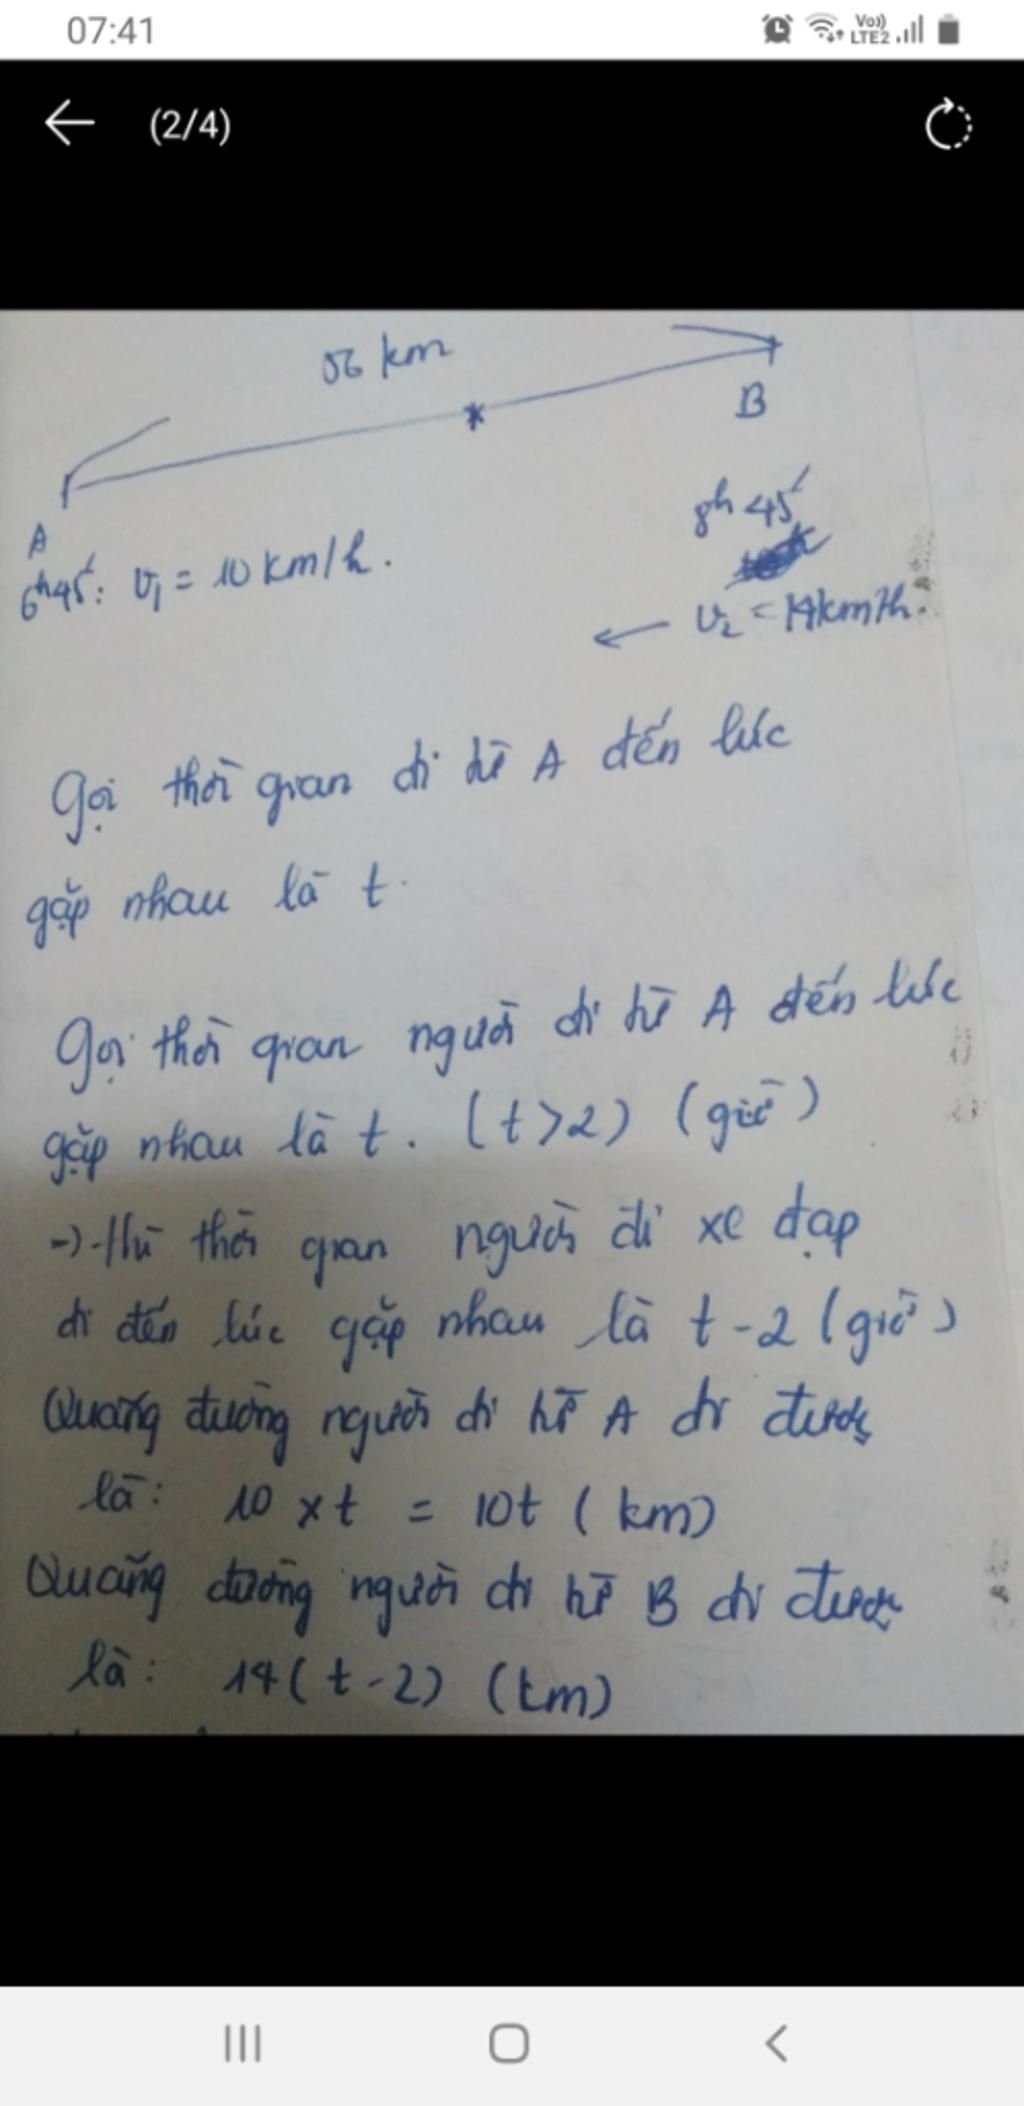 07:41
Vo)) LTE2
(2/4)
56 km
A
B
6h45': v₁ = 10 km/h.
8h45'
v₂ = 14km/h.
Gọi thời gian đi từ A đến lúc
gặp nhau là t.
Gọi thời gian người đi từ A đến lúc
gặp nhau là t. (t>2) (giờ)
-) thì thời gian người đi xe đạp
đi đến lúc gặp nhau là t-2 (giờ)
Quãng đường người đi từ A đi được
là: 10 x t = 10t (km)
Quãng đường người đi từ B đi được
là: 14(t-2) (km)